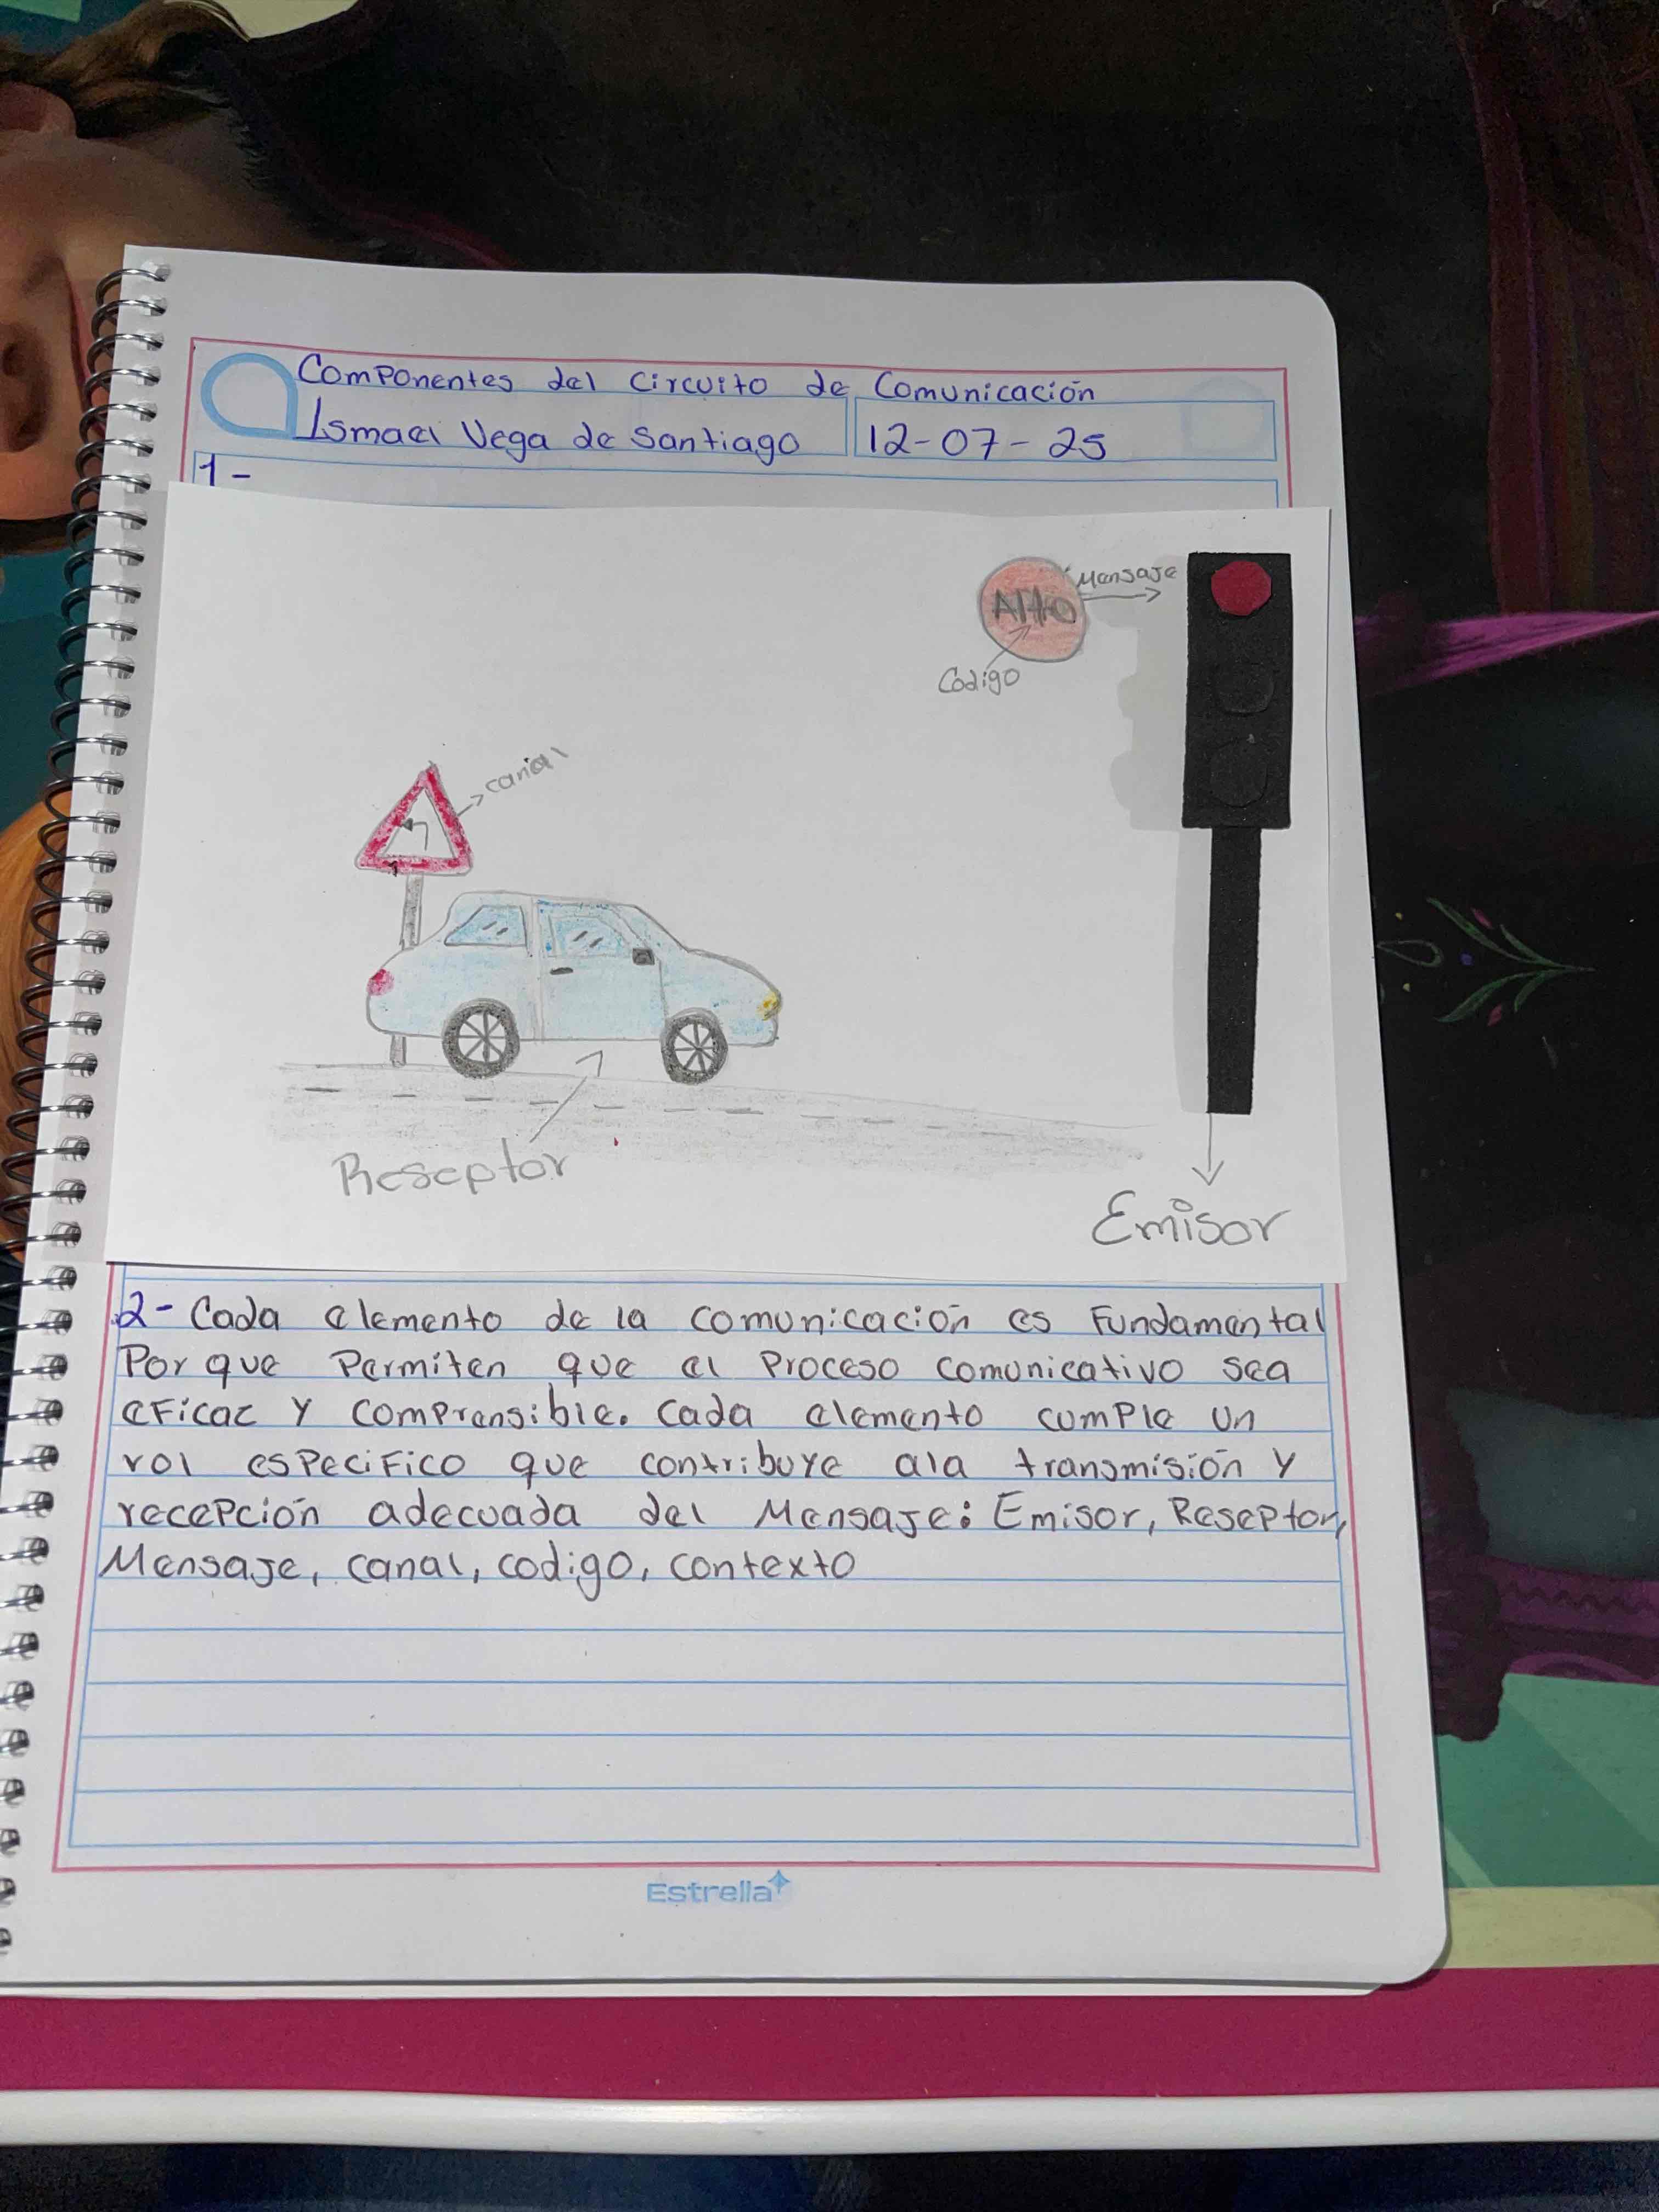 Componentes del circuito de Comunicación
Ismael Vega de Santiago
12-07-25
1-
Mensaje
Alto
Codigo
canal
Reseptor
Emisor
2- Cada elemento de la comunicación es Fundamental
Por que Permiten que el Proceso comunicativo sea
eFicaz y comprensible. Cada elemento cumple un
rol esPeciFico que contribuye ala transmisión y
recepción adecuada del Mensaje: Emisor, Reseptor,
Mensaje, canal, codigo, contexto
Estrella